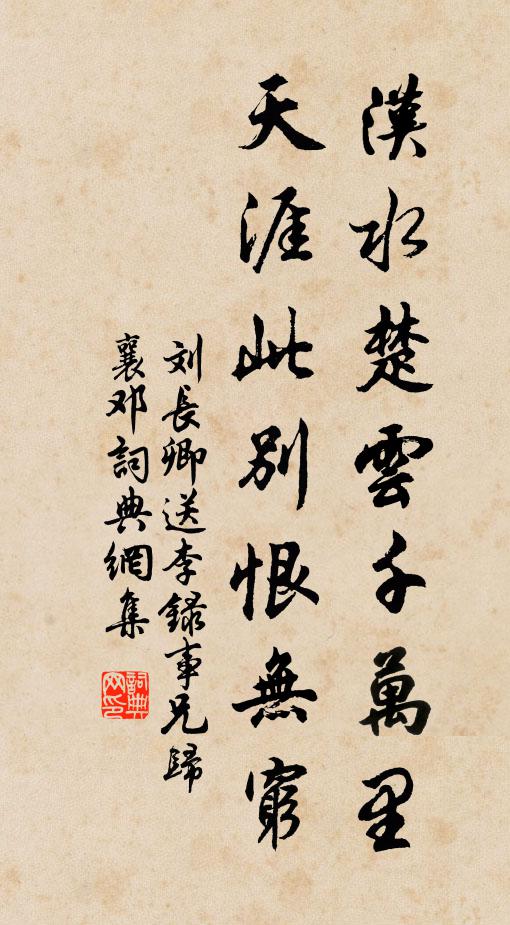 漢水楚雲千萬里
天涯此別恨無窮
刘長卿送李録事兄歸
襄邓詞典網集
詞典
网印